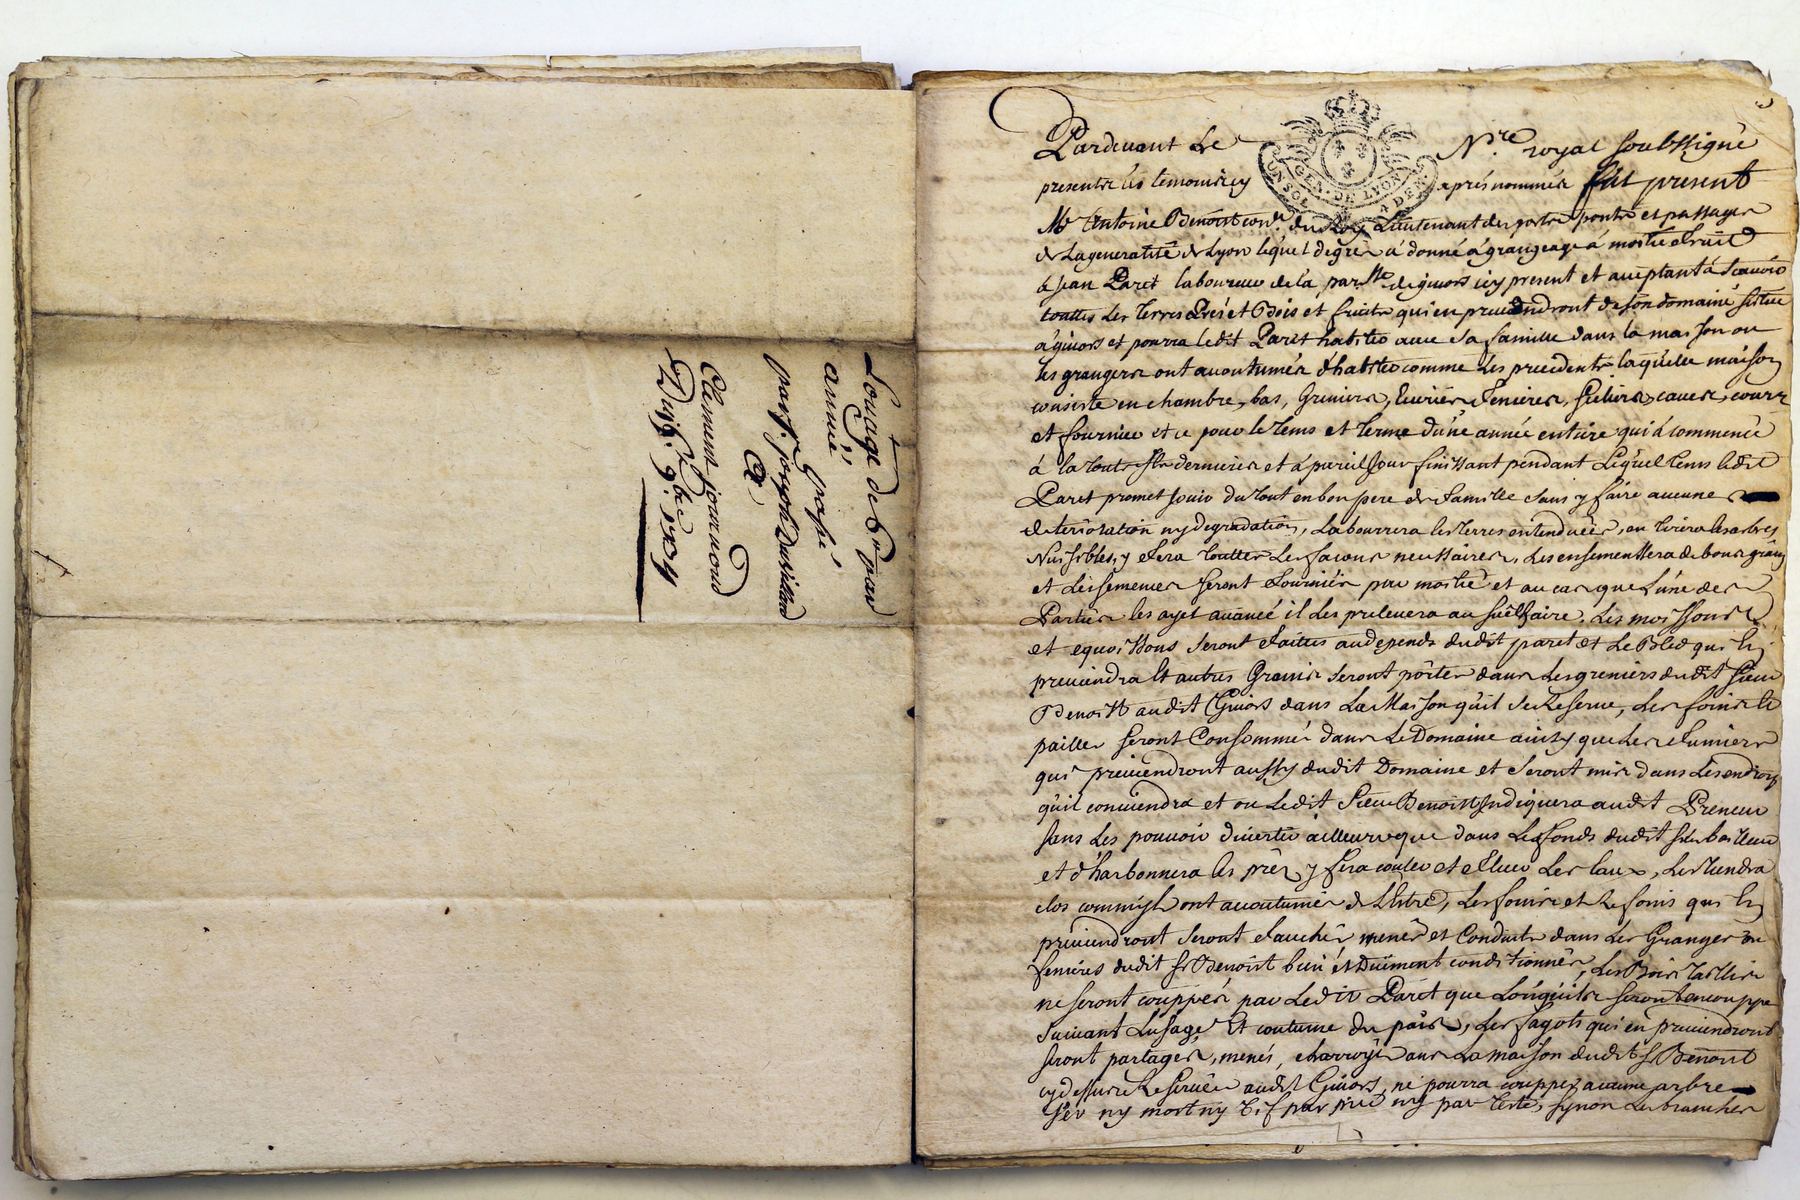 Louage de pour
année
passé
par S. joseph Duvillard
A
Clement journaud
Du 9.bre
Pardevant Le N.re royal soubssigné
presents les temoins cy aprés nommés fut present
M.e Antoine Benoist con.er du Roy Lieutenant des ports ponts et passages
de Lageneralité de Lyon lequel degré a donné a grangeage á moitié fruit
á Jean Paret laboureur de la parr.sse de givors icy present et acceptant á Scavoir
touttes Les terres Prés et Bois et fruits qui en proviendront de son domaine sittué
a givors et pourra ledit Paret habiter avec Sa famille dans la maison ou
les grangers ont accoutumés d'habiter comme Les precedents laquelle maison
consiste en chambre, bas, Greniers, Ecuries fenieres, Seliers, caves, cours
et fourniere et ce pour le tems et terme d'une année entiere qui á commencé
á la Toutss.ts derniere et á pareil Jour finissant pendant Lequel tems ledit
Paret promet jouir du tout en bon pere de famille Sans y faire aucune
deterioration ny degradation, Labourrera les terres en tirera les arbres
Nuisibles, y fera touttes Les facons necessaires, Les ensemensera de bons grains
et Les semences Seront fournies par moitié et au cas que L'une des
Parties les ayet avancé il Les prelevera au Les moissons
et Seront faittes audepends dudit paret et Le Bled qui En
proviendra Et autres Grains Seront portés dans Les greniers dudit Sieur
Benoist audit Givors dans La Maison qu'il Se Reserve, Les foins et
pailles Seront Consommés dans Le Domaine ainsy que Les fumiers
qui proviendront aussy dudit Domaine et Seront mis dans Les endroits
qu'il conviendra et ou Ledit Sieur Benoist Indiquera audit Preneur
sans Les pouvoir divertir ailleurs que dans Les fonds dudit Sr bailleur
et les prés y fera couler et Les Eaux, Les tiendra
clos comm'ils ont accoutumés de L'être, Les foins et qui En
proviendront Seront fauchés menés et Conduits dans Les Granges ou
fenieres dudit Sr Benoist bien et Duëment conditionnés, Les Bois taillis
ne Seront couppés par Ledit Paret que Lorsqu'ils Seront en couppe
Suivant L'usage Et coutume du païs, Les fagots qui en proviendront
Seront partagés, menés, charroyés dans La maison dudit Sr Benoist
cydessus Reservée audit Givors, ne pourra coupper aucun arbre
ny mort ny vif par pied ny par teste, synon Les branches